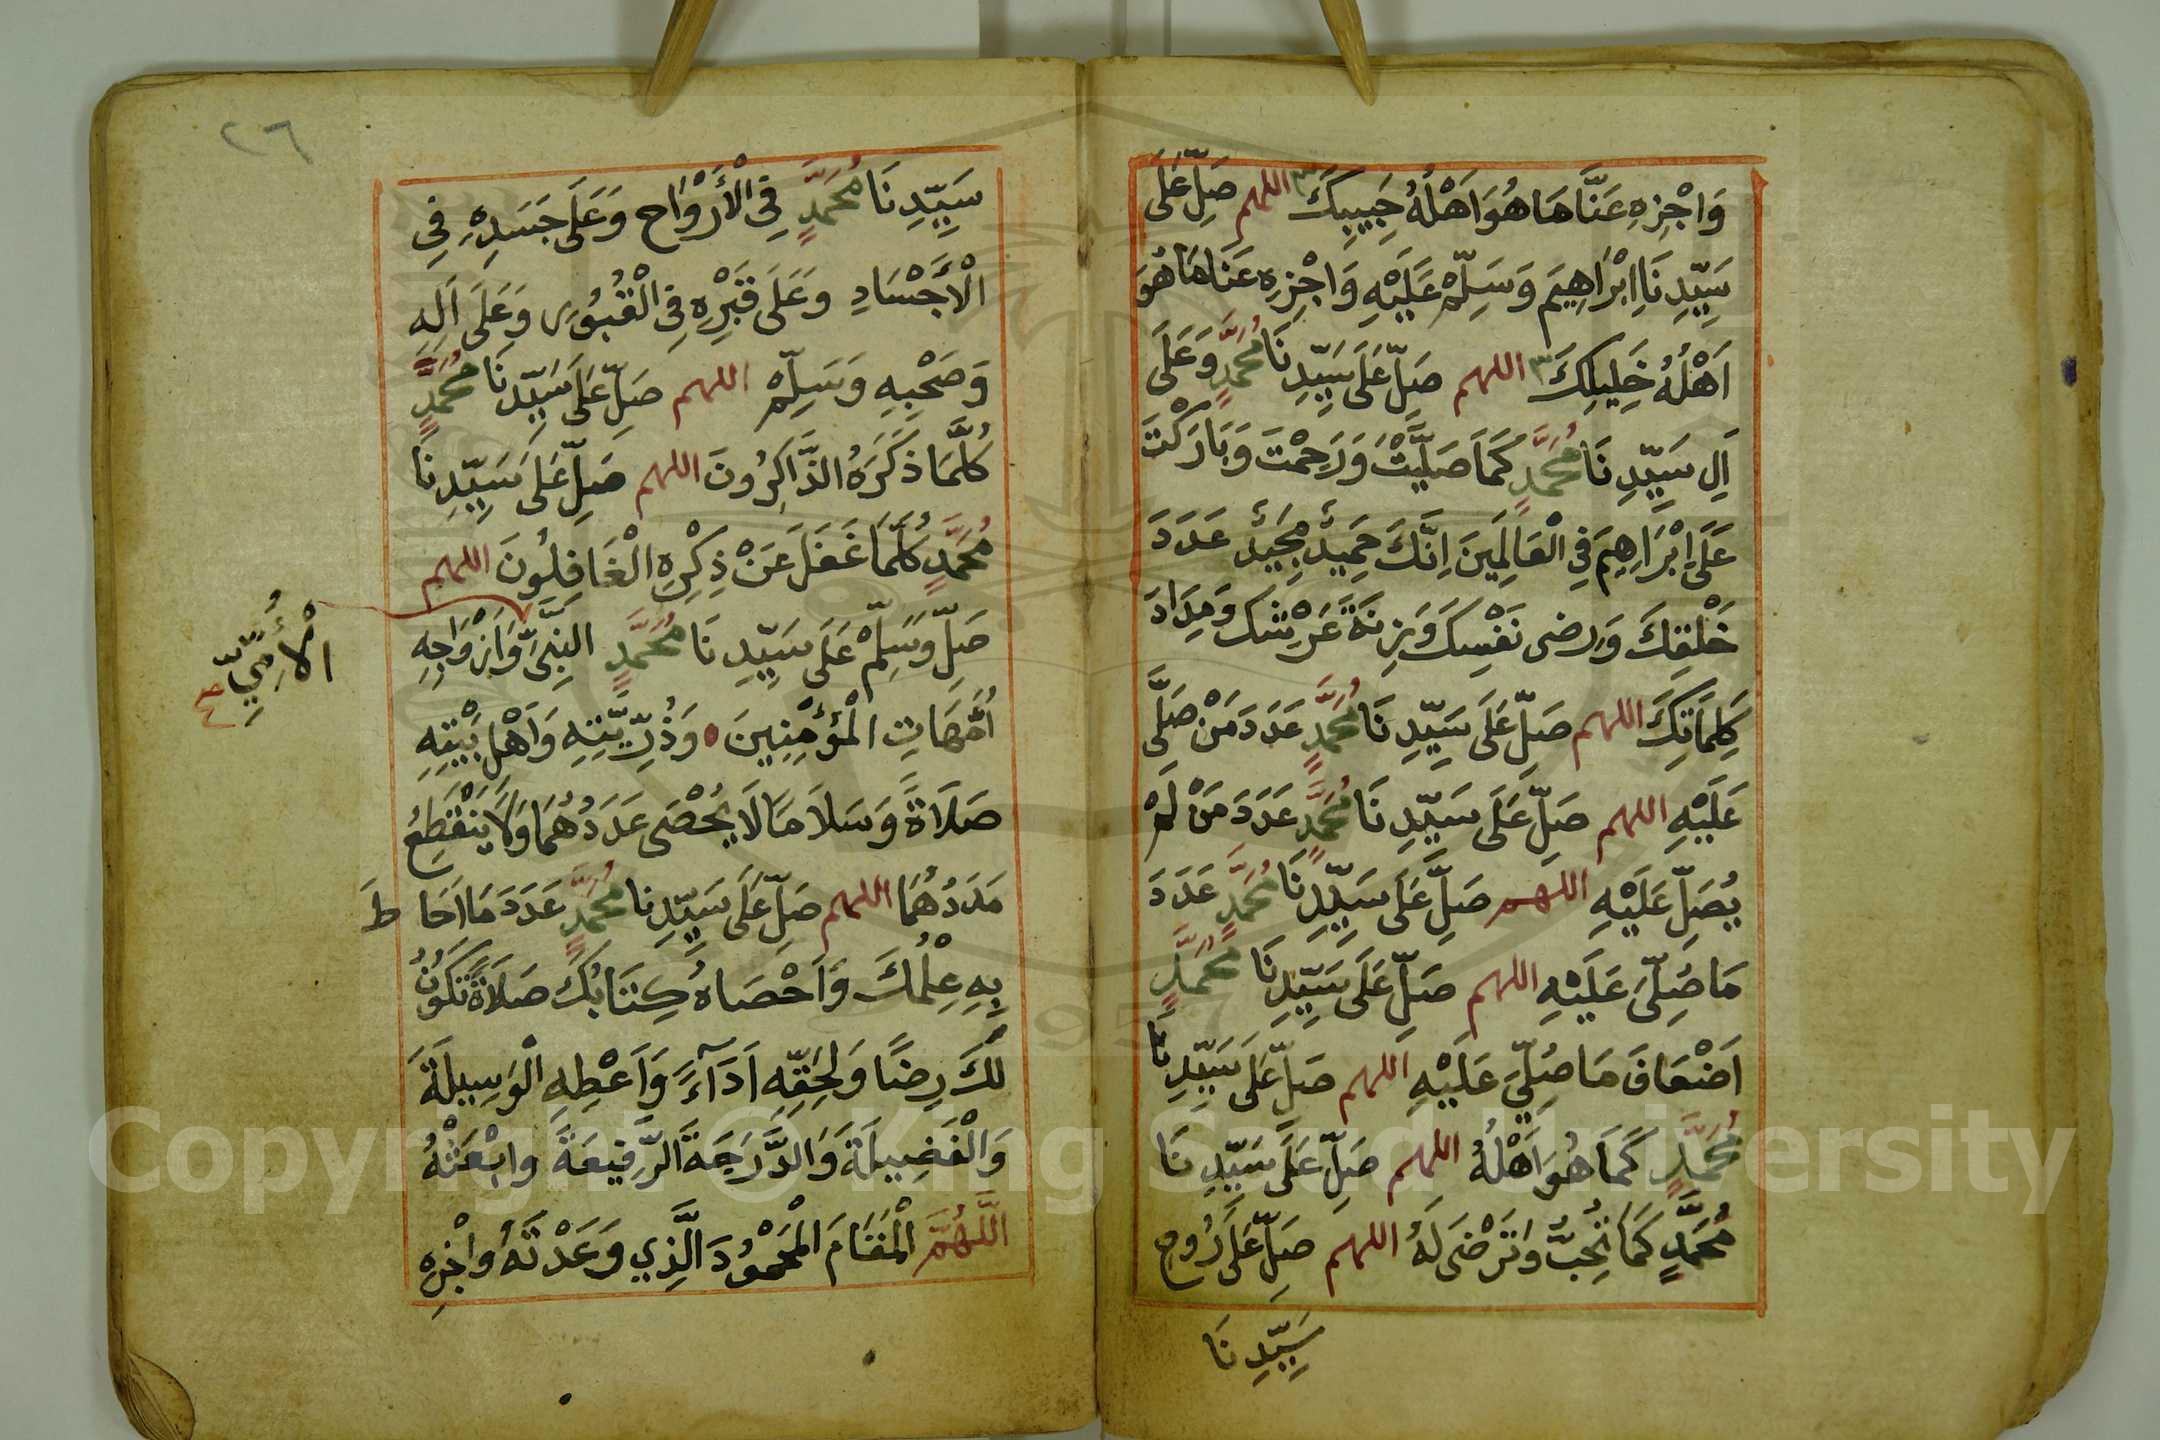 وَاجْزِهِ عَنَّا مَا هُوَ اَهْلُهُ حَبِيبِكَ ٣ اللهم صَلِّ عَلَى
سَيِّدِنَا اِبْرَاهِيمَ وَسَلِّمْ عَلَيْهِ وَاجْزِهِ عَنَا مَا هُوَ
اَهْلُهُ خَلِيلِكَ ٣ اللهم صَلِّ عَلَى سَيِّدِنَا مُحَمَّدٍ وَعَلَى
اَلِ سَيِّدِنَا مُحَمَّدٍ كَمَا صَلَيَّتْ وَرَحِمْتَ وَبَارَكْتَ
عَلَى اِبْرَاهِيمَ فِي الْعَالَمِينَ اِنَّكَ حَمِيدٌ مَجِيدٌ عَدَدَ
خَلْقِكَ وَرِضَى نَفْسِكَ وَزِنَةَ عَرْشِكَ وَمِدَادَ
كَلِمَاتِكَ اللهم صَلِّ عَلَى سَيِّدِنَا مُحَمَّدٍ عَدَدَ مَنْ صَلَّى
عَلَيْهِ اللهم صَلِّ عَلَى سَيِّدِنَا مُحَمَّدٍ عَدَدَ مَنْ لَمْ
يُصَلِّ عَلَيْهِ اللهم صَلِّ عَلَى سَيِّدِنَا مُحَمَّدٍ عَدَدَ
مَا صُلِّيَ عَلَيْهِ اللهم صَلِّ عَلَى سَيِّدِنَا مُحَمَّدٍ
اَضْعَافَ مَا صُلِّيَ عَلَيْهِ اللهم صَلِّ عَلَى سَيِّدِنَا
مُحَمَّدٍ كَمَا هُوَ اَهْلُهُ اللهم صَلِّ عَلَى سَيِّدِنَا
مُحَمَّدٍ كَمَا تُحِبُّ وَتَرْضَى لَهُ اللهم صَلِّ عَلَى رُوحِ
سَيِّدِنَا
٢٦
سَيِّدِنَا مُحَمَّدٍ فِي الْأَرْوَاحِ وَعَلَى جَسَدِهِ فِي
الْأَجْسَادِ وعَلَى قَبْرِهِ فِي الْقُبُورِ وَعَلَى اَلِهِ
وَصَحْبِهِ وَسَلِّمْ اللهم صَلِّ عَلَى سَيِّدِنَا مُحَمَّدٍ
كُلَّمَا ذَكَرَهُ الذَّاكِرُونَ اللهم صَلِّ عَلَى سَيِّدِنَا
مُحَمَّدٍ كُلَّمَا غَفَلَ عَنْ ذِكْرِهِ الْغَافِلُونَ اللهم
صَلِّ وَسَلِّمْ عَلَى سَيِّدِنَا مُحَمَّدٍ النَّبِيِّ وَاَزْوَاجِهِ
الْأُمِّيِّ
اُمَّهَاتِ الْمُؤْمِنِينَ وَذُرِّيَّتِهِ وَاَهْلِ بَيْتِهِ
صَلَاةً وَسَلَامَا لَا يُحْصَى عَدَدُهُمَا وَلَا يَنْقَطِعُ
مَدَدُهُمَا اللهم صَلِّ عَلَى سَيِّدِنا مُحَمَّدٍ عَدَدَ مَا اَحَاطَ
بِهِ عِلْمُكَ وَاَحْصَاهُ كِتَابُكَ صَلَاةً تَكُونُ
لَكَ رِضًا وَلِحَقِّهِ اَدَآءً وَاَعْطِهِ الْوَسِيلَةَ
وَالْفَضِيلَةَ وَالدَّرَجَةَ الرَّفِيعَةَ وابْعَثْهُ
اللَّهُمَّ الْمَقَامَ الْمَحْمُودَ الَّذِي وَعَدْتَهُ وَاجْزِهِ
Copyright © King Saud University
1957